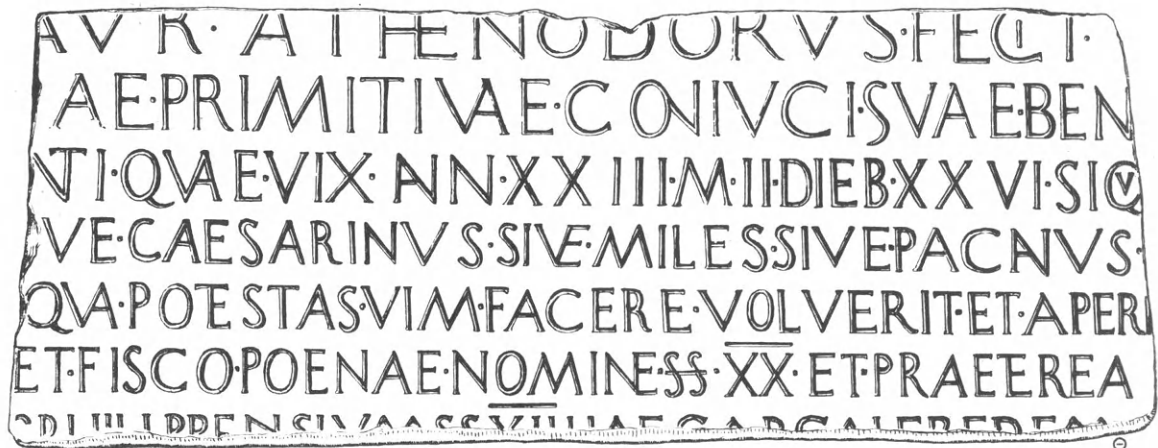 AVR·ATHENODORVS·FECIT·
AE·PRIMITIVAE·CONIVCI·SVAE·BEN
NTI·QVAE·VIX·ANN·XXIII·M·II·DIEB·XXVI·SIQV
VE·CAESARINVS·SIVE·MILES·SIVE·PACNVS·
QVA·POTESTAS·VIM·FACERE·VOLVERIT·ET·APERI
ET·FISCO·POENAE·NOMINE·SS·XX·ET·PRAETEREA